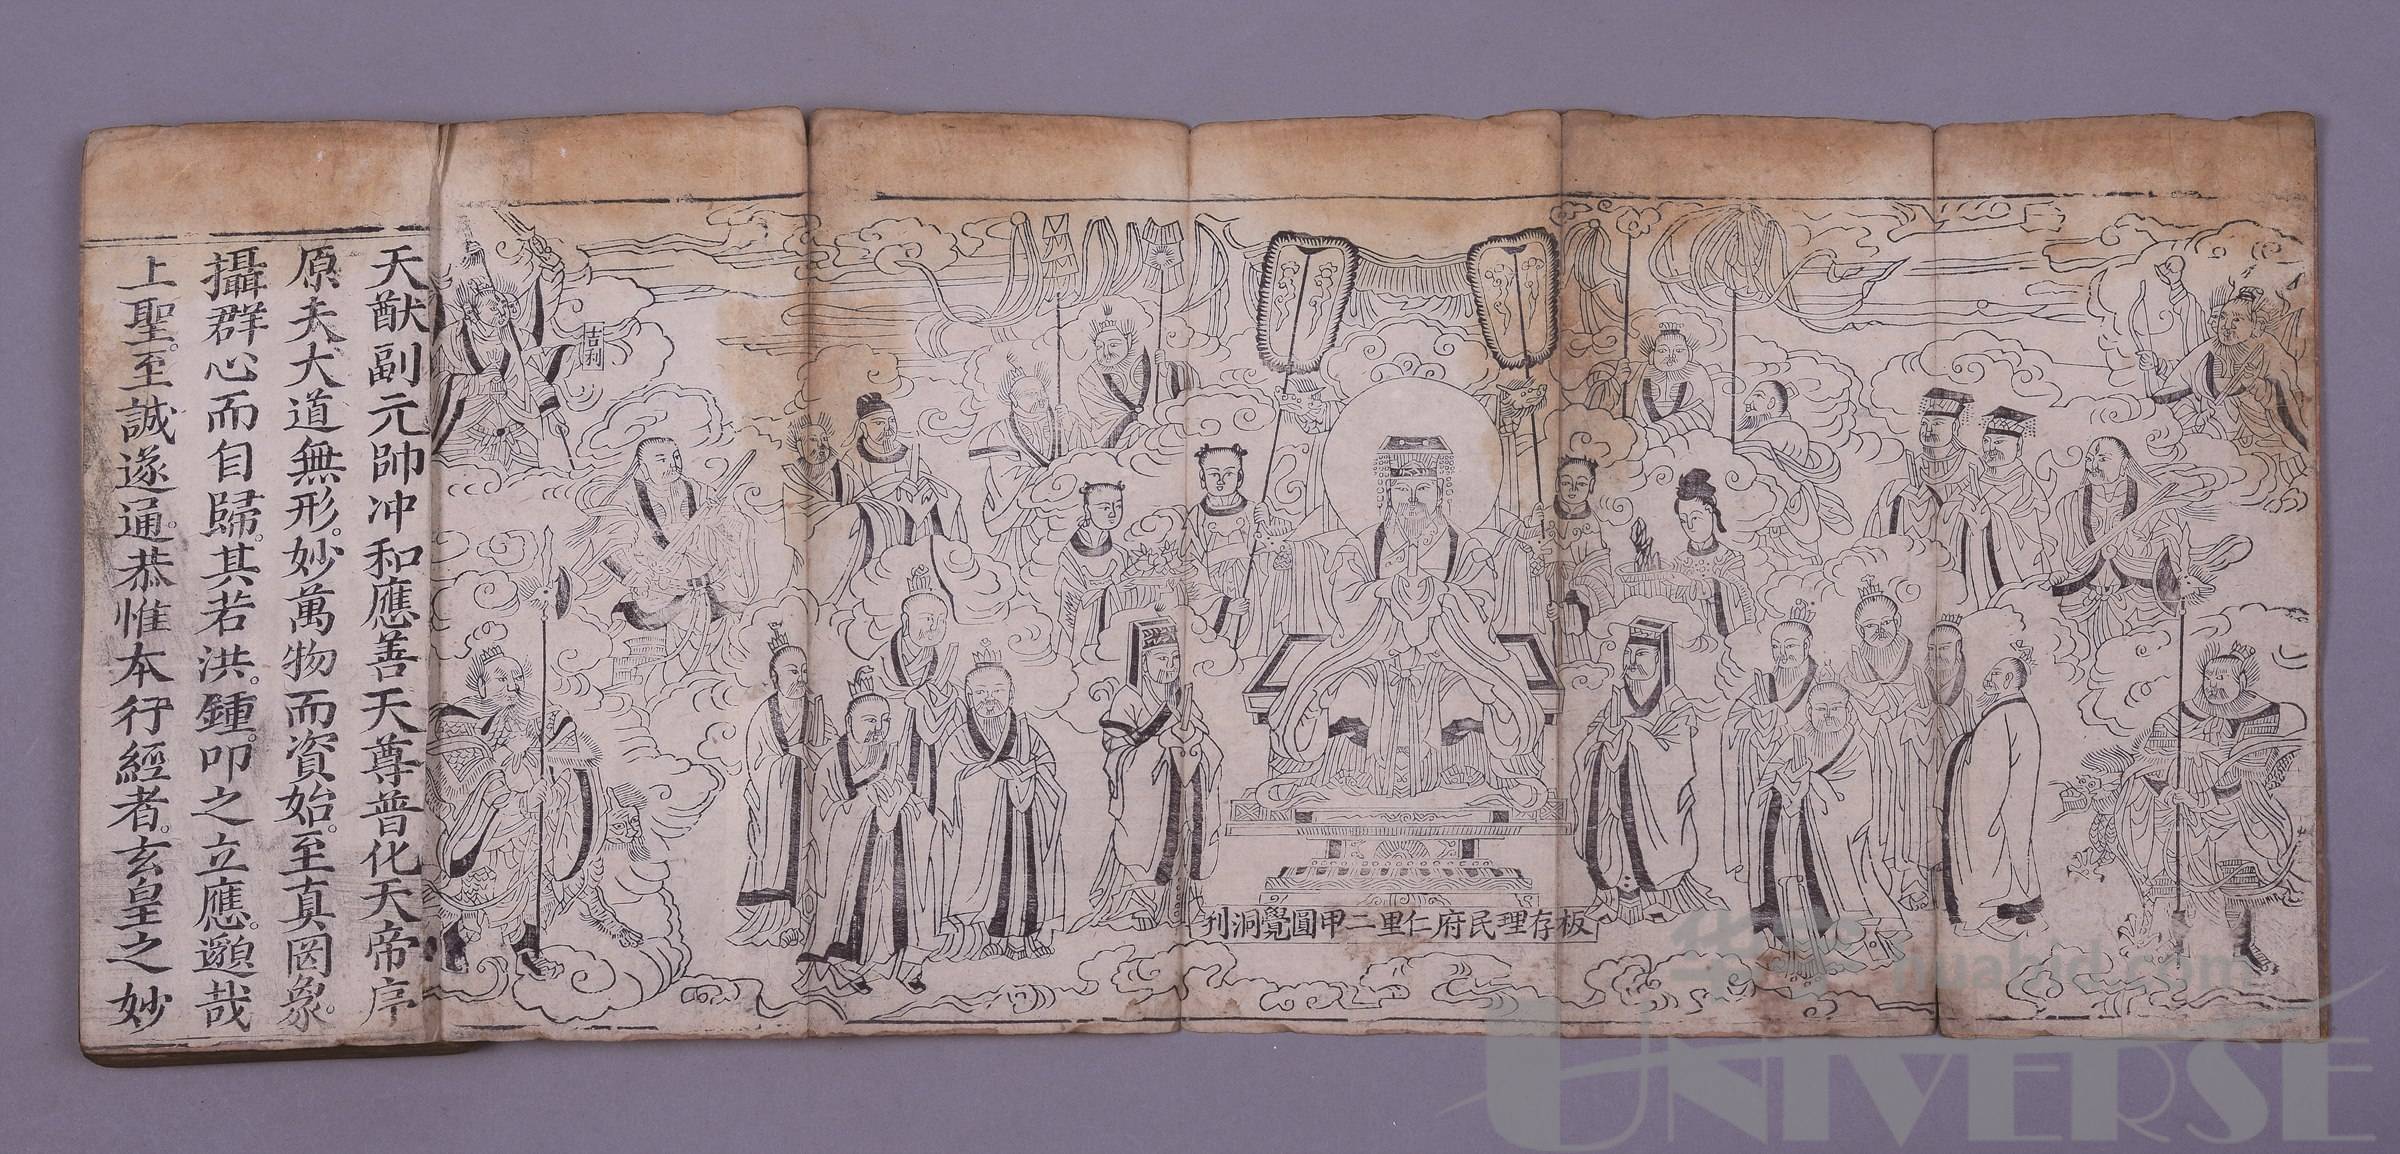 天猷副元帥冲和應善天尊普化天帝序
原夫大道無形。妙萬物而資始。至真罔象。
攝群心而自歸。其若洪鍾。叩之立應。邈哉
上聖。至誠遂通。恭惟本行經者。玄皇之妙
吉利
板存理民府仁里二甲圓覺洞刊
华宇 huabid.com
UNIVERSE